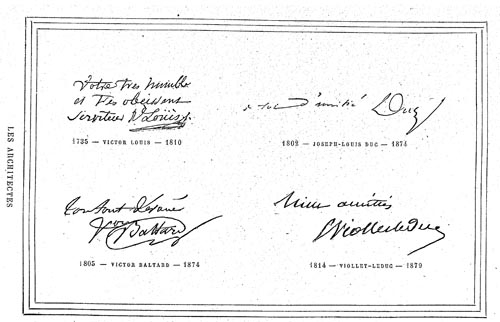 LES ARCHITECTES
Votre tres humble
et tres obeissent
serviteur V Louis
1735 — VICTOR LOUIS — 1810
à toi d'amitié LDuc
1802 — JOSEPH-LOUIS DUC — 1874
Ton tout dévoué
V Baltard
1805 — VICTOR BALTARD — 1874
Mille amitiés
EViolletleDuc
1814 — VIOLLET-LEDUC — 1879